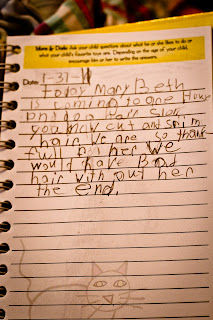 Moms & Dads: Ask your child questions about what he or she likes to do or
what your child's favorite toys are. Depending on the age of your child,
encourage him or her to write the answers.
Date: 1-31-11
Today Mary Beth
is coming to one
you may cut and
hair. We are so thank
full for her we
would have Bad
hair with out her
the end.